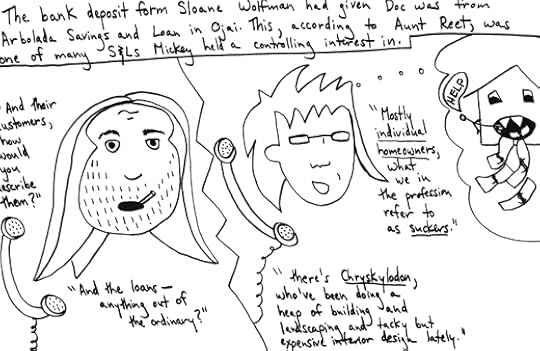 The bank deposit form Sloane Wolfman had given Doc was from
Arbolada Savings and Loan in Ojai. This, according to Aunt Reet, was
one of many S&Ls Mickey held a controlling interest in.
"And their
customers,
how
would
you
describe
them?"
"Mostly
individual
homeowners,
what
we in
the profession
refer to
as suckers."
HELP
"And the loans—
anything out of
the ordinary?"
"there's Chryskylodon,
who've been doing a
heap of building and
landscaping and tacky but
expensive interior design lately."